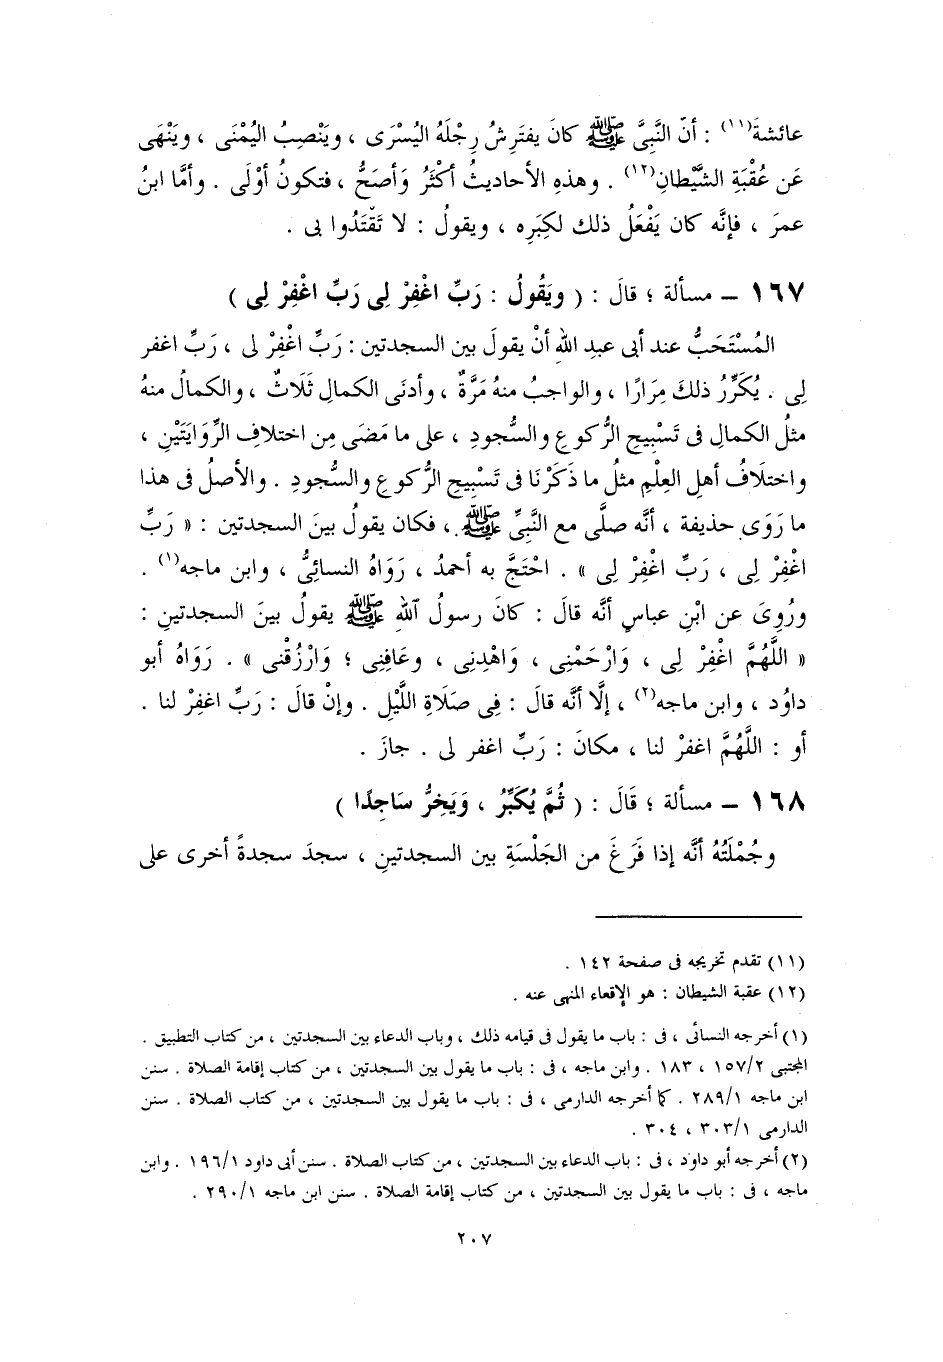 عائشةَ(١١) : أنَّ النَّبِيَّ ﷺ كانَ يفتَرِشُ رِجْلَهُ اليُسْرَى ، ويَنْصِبُ اليُمْنَى ، ويَنْهَى
عَن عُقْبَةِ الشَّيْطانِ(١٢) . وهذهِ الأحاديثُ أكْثَرُ وَأصَحُّ ، فتكونُ أوْلَى . وأمَّا ابنُ
عمرَ ، فإنَّه كان يَفْعَلُ ذلك لكِبَرِه ، ويقولُ : لا تَقْتَدُوا بى .
١٦٧ – مسألة ؛ قالَ : ( ويَقُولُ : رَبِّ اغْفِرْ لِى رَبِّ اغْفِرْ لِى )
المُسْتَحَبُّ عند أبى عبدِ اللهِ أنْ يقولَ بين السجدتين : رَبِّ اغْفِرْ لى ، رَبِّ اغفر
لِى . يُكَرِّرُ ذلكَ مِرَارًا ، والواجبُ منهُ مَرَّةٌ ، وأدنَى الكمالِ ثَلَاثٌ ، والكمالُ منهُ
مثلُ الكمالِ فى تَسْبِيحِ الرُّكوعِ والسُّجودِ ، على ما مَضَى مِن اختلافِ الرِّوَايَتَيْنِ ،
واختلَافُ أهلِ العِلْمِ مثلُ ما ذَكَرْنَا فى تَسْبِيحِ الرُّكوعِ والسُّجودِ . والأصلُ فى هذا
ما رَوَى حذيفة ، أنَّه صلَّى مع النَّبِىِّ ﷺ ، فكان يقولُ بينَ السجدتين : « رَبِّ
اغْفِرْ لِى ، رَبِّ اغْفِرْ لِى » . احْتَجَّ به أحمدُ ، رَوَاهُ النسائِىُّ ، وابن ماجه(١) .
ورُوِىَ عن ابْنِ عباسٍ أنَّه قالَ : كانَ رسولُ اللهِ ﷺ يقولُ بينَ السجدتينِ :
« اللَّهُمَّ اغْفِرْ لِى ، وَارْحَمْنِى ، وَاهْدِنِى ، وعَافِنِى ؛ وَارْزُقْنى » . رَوَاهُ أبو
داوُد ، وابن ماجه(٢) ، إلَّا أنَّه قالَ : فِى صَلَاةِ اللَّيْلِ . وإنْ قالَ : رَبِّ اغفِرْ لنا .
أو : اللَّهُمَّ اغفرْ لنا ، مكانَ : رَبِّ اغفر لى . جازَ .
١٦٨ – مسألة ؛ قَالَ : ( ثُمَّ يُكَبِّرُ ، وَيَخِرُّ سَاجِدًا )
وجُمْلَتُهُ أنَّه إذا فَرَغَ من الجَلْسَةِ بين السجدتينِ ، سجدَ سجدةً أخرى على
(١١) تقدم تخريجه فى صفحة ١٤٢ .
(١٢) عقبة الشيطان : هو الإقعاء المنهى عنه .
(١) أخرجه النسائى ، فى : باب ما يقول فى قيامه ذلك ، وباب الدعاء بين السجدتين ، من كتاب التطبيق .
المجتبى ٢/١٥٧ ، ١٨٣ . وابن ماجه ، فى : باب ما يقول بين السجدتين ، من كتاب إقامة الصلاة . سنن
ابن ماجه ١/٢٨٩ . كما أخرجه الدارمى ، فى : باب ما يقول بين السجدتين ، من كتاب الصلاة . سنن
الدارمى ١/٣٠٣ ، ٣٠٤ .
(٢) أخرجه أبو داود ، فى : باب الدعاء بين السجدتين ، من كتاب الصلاة . سنن أبى داود ١/١٩٦ . وابن
ماجه ، فى : باب ما يقول بين السجدتين ، من كتاب إقامة الصلاة . سنن ابن ماجه ١/٢٩٠ .
٢٠٧